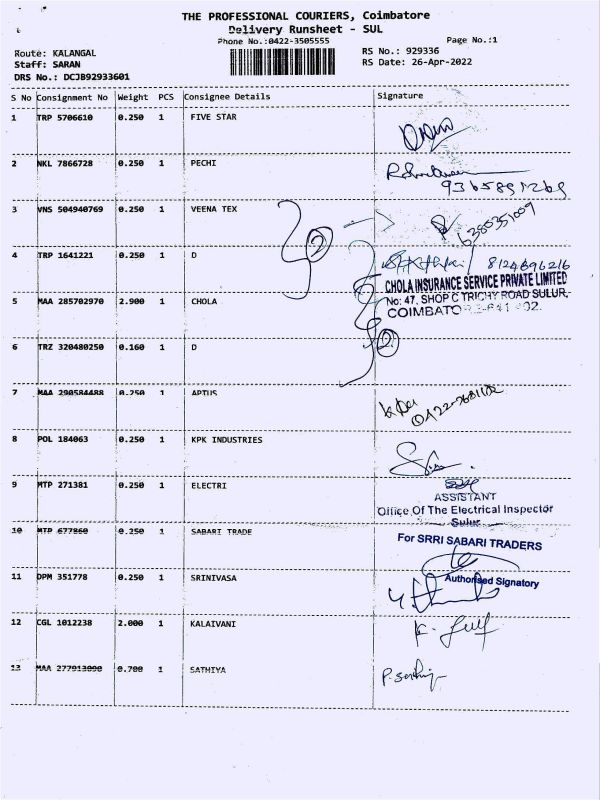 THE PROFESSIONAL COURIERS, Coimbatore
Delivery Runsheet - SUL
Phone No.:0422-3505555
Page No.:1
Route: KALANGAL
RS No.: 929336
Staff: SARAN
RS Date: 26-Apr-2022
DRS No.: DCJB92933601
S No Consignment No Weight PCS Consignee Details Signature
1 TRP 5706610 0.250 1 FIVE STAR
2 NKL 7866728 0.250 1 PECHI
3 VNS 504940769 0.250 1 VEENA TEX
2
4 TRP 1641221 0.250 1 D 8124696216
CHOLA INSURANCE SERVICE PRIVATE LIMITED
5 MAA 285702970 2.900 1 CHOLA No: 47, SHOP C TRICHY ROAD SULUR,
6 TRZ 320480250 0.160 1 D
2
7 MAA 290584488 0.250 1 APTUS
8 POL 184063 0.250 1 KPK INDUSTRIES
9 MTP 271381 0.250 1 ELECTRI
ASSISTANT
Office Of The Electrical Inspector
Sulur
10 MTP 677860 0.250 1 SABARI TRADE
For SRRI SABARI TRADERS
11 DPM 351778 0.250 1 SRINIVASA Authorised Signatory
12 CGL 1012238 2.000 1 KALAIVANI
13 MAA 277913090 0.700 1 SATHIYA